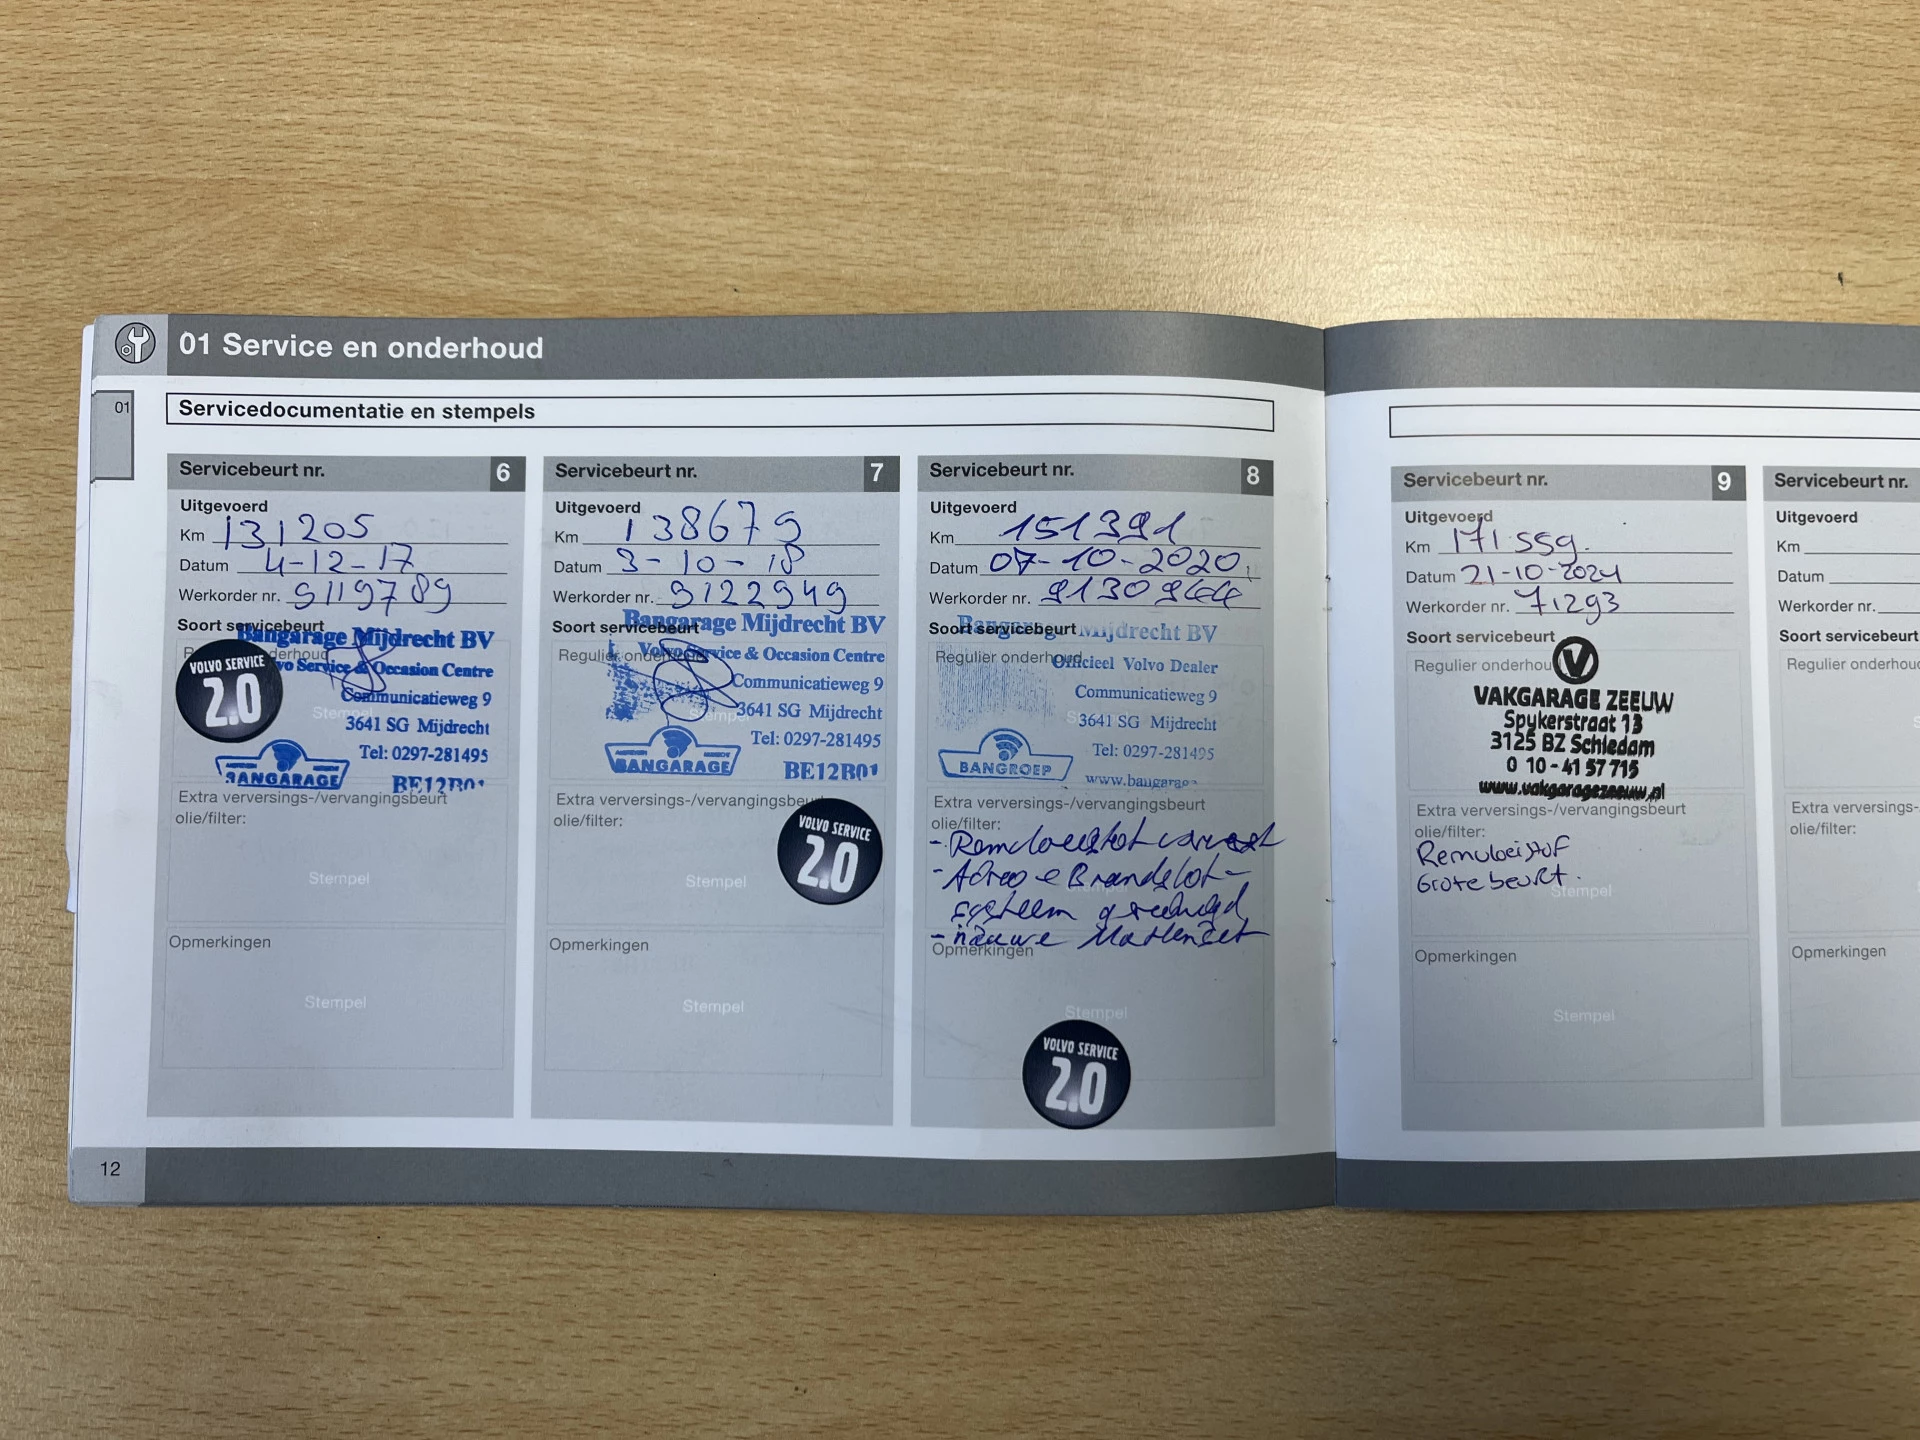 01 Service en onderhoud
01
Servicedocumentatie en stempels
Servicebeurt nr. 6
Uitgevoerd
Km 131205
Datum 4-12-17
Werkorder nr. 9119789
Soort servicebeurt
Bangarage Mijdrecht BV
Service & Occasion Centre
Communicatieweg 9
3641 SG Mijdrecht
Tel: 0297-281495
BE12B01
VOLVO SERVICE
2.0
BANGARAGE
Stempel
Extra verversings-/vervangingsbeurt
olie/filter:
Stempel
Opmerkingen
Stempel
Servicebeurt nr. 7
Uitgevoerd
Km 138679
Datum 3-10-18
Werkorder nr. 9122949
Soort servicebeurt
Bangarage Mijdrecht BV
Regulier onderhoud
Volvo Service & Occasion Centre
Communicatieweg 9
Stempel
3641 SG Mijdrecht
Tel: 0297-281495
BANGARAGE
BE12B01
Extra verversings-/vervangingsbeurt
olie/filter:
VOLVO SERVICE
2.0
Stempel
Opmerkingen
Stempel
Servicebeurt nr. 8
Uitgevoerd
Km 151391
Datum 07-10-2020
Werkorder nr. 9130944
Soort servicebeurt
Bangarage Mijdrecht BV
Regulier onderhoud
Officieel Volvo Dealer
Communicatieweg 9
3641 SG Mijdrecht
Tel: 0297-281495
BANGROEP
www.bangarag
Extra verversings-/vervangingsbeurt
olie/filter:
- Remvloeistof
- Airco e Brandstof-
systeem gereinigd
- nieuwe Mattenset
Opmerkingen
Stempel
VOLVO SERVICE
2.0
12
Servicebeurt nr. 9
Uitgevoerd
Km 171 559.
Datum 21-10-2024
Werkorder nr. 71293
Soort servicebeurt
Regulier onderhou
V
VAKGARAGE ZEEUW
Spykerstraat 13
3125 BZ Schiedam
0 10-41 57 715
www.vakgaragezeeuw.pl
Extra verversings-/vervangingsbeurt
olie/filter:
Remvloeistof
Grote beurt.
Stempel
Opmerkingen
Stempel
Servicebeurt nr.
Uitgevoerd
Km
Datum
Werkorder nr.
Soort servicebeurt
Regulier onderhoud
Extra verversings-
olie/filter:
Opmerkingen